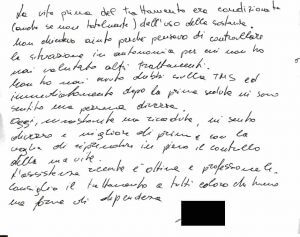 La vita prima del trattamento era condizionata
(anche se non totalmente) dall'uso della sostanza.
Non chiedevo aiuto perché pensavo di controllare
la situazione in autonomia per cui non ho
mai valutato altri trattamenti.
Non ho mai avuto dubbi sulla TMS ed
immediatamente dopo la prima seduta mi sono
sentito una persona diversa.
Oggi, nonostante una ricaduta, mi sento
diverso e migliore di prima e con la
voglia di riprendere in pieno il controllo
della mia vita.
L'assistenza ricevuta è ottima e professionale.
Consiglio il trattamento a tutti coloro che hanno
una forma di dipendenza